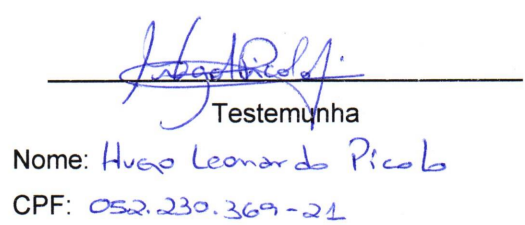 Testemunha
Nome: Hugo Leonardo Picolo
CPF: 052.230.369-21